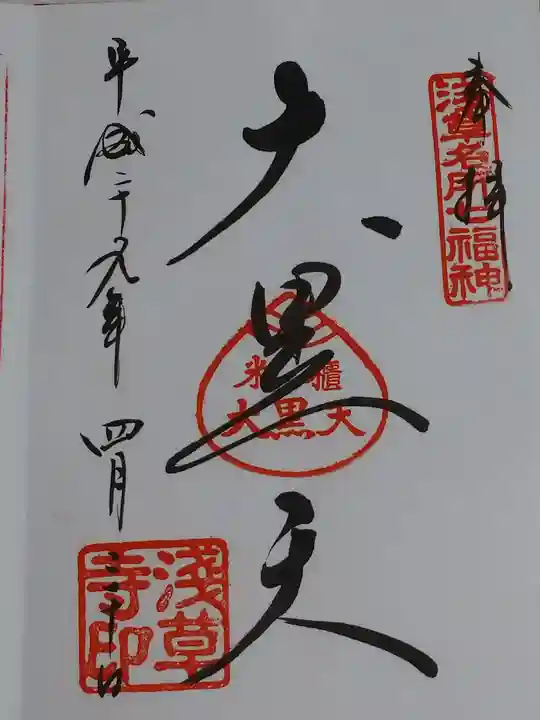 奉拝
浅草名所七福神
大黒天
米櫃
大黒天
平成二十九年四月三十日
浅草
寺印